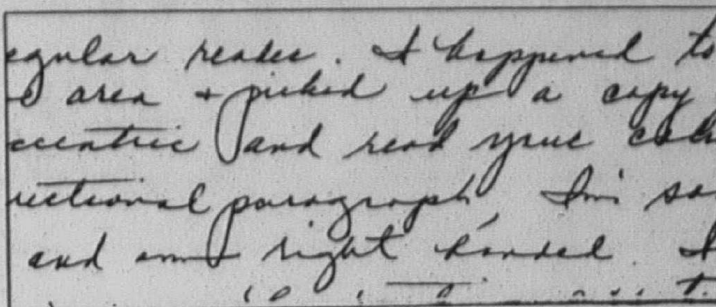 egular reader. I happened to
area + picked up a copy
ccentric and read your colu
uctional paragraph, I'm so
and am right handed. I